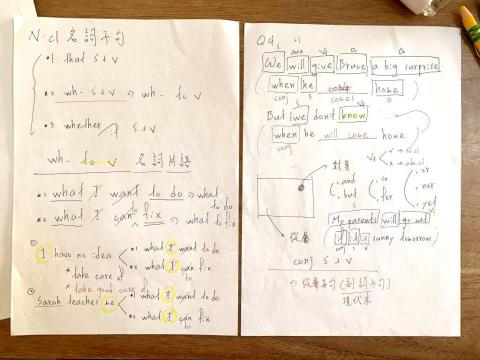 N.cl 名詞子句
*1 that S+V
*2 wh- S+V ⇒ wh- to V
*3 whether/if S+V
wh- to V 名詞片語
*1 what I want to do ⇒ what to do
*2 what I can fix ⇒ what to fix
① I have no idea
*1 what I want to do.
*2 what I can fix.
to
* take care of
* take good care of
② Sarah teaches me
*1 what I want to do.
*2 what I can fix
to
Q4
S aux V4 O O
We will give Bruce a big surprise
when he comes home
conj S V
But we don't know
when he will come home.
conj
V4
對等
, and
, but
, so
, for
, or
, nor
, yet
My parents will go out
if it is sunny tomorrow.
從屬
conj S+V
⇒ 從屬子句(副詞子句)
現代未